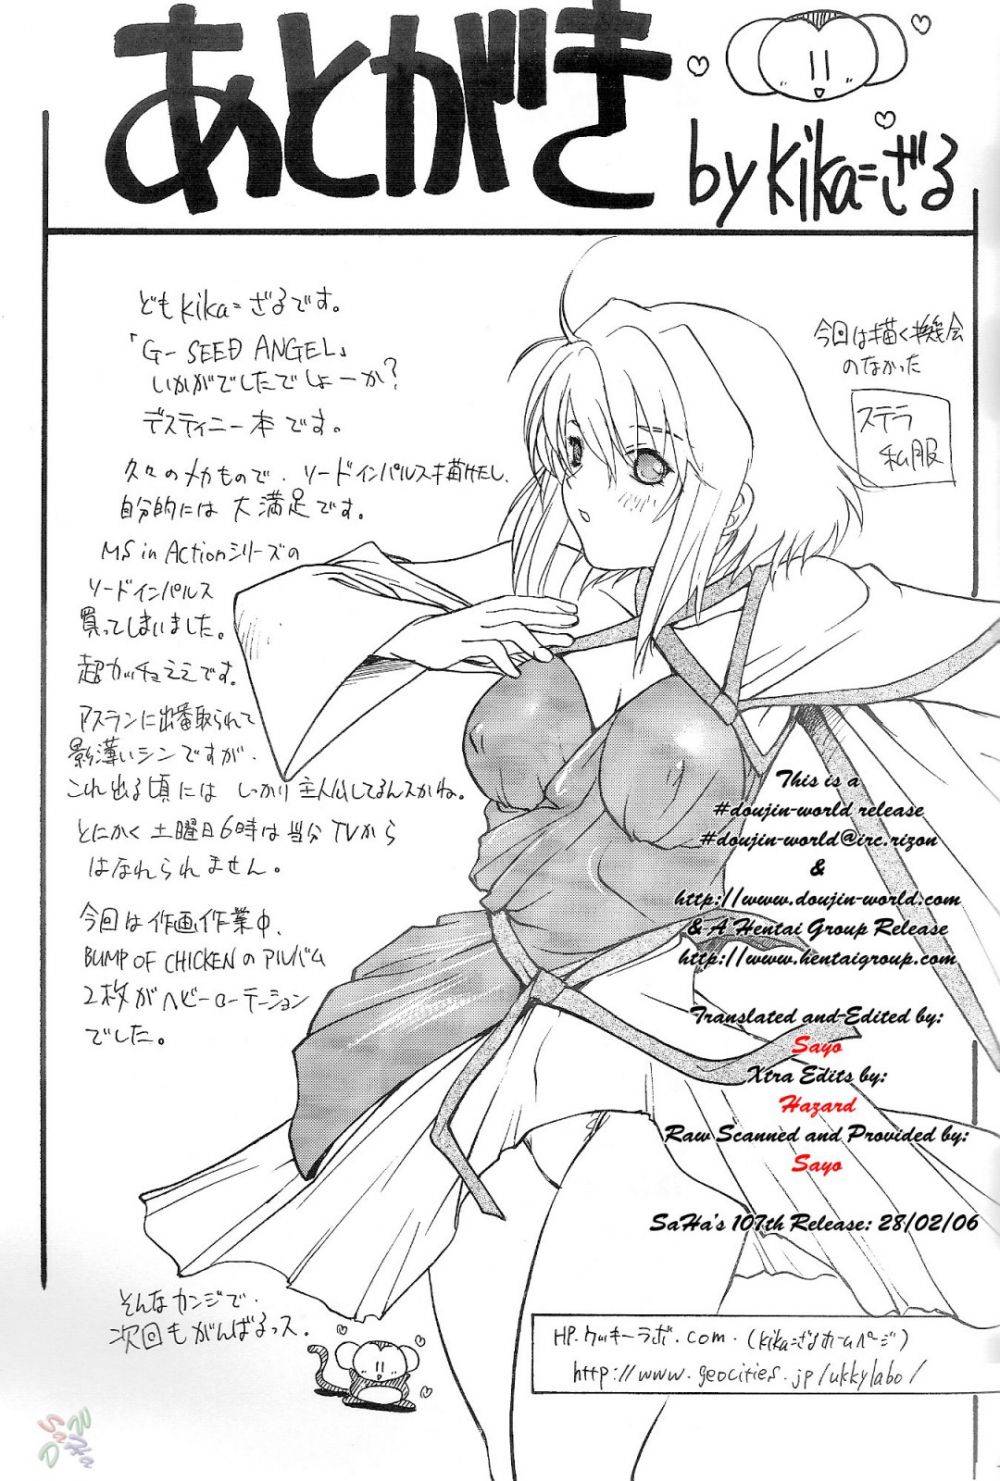 あとがき
by Kika=ざる
どもKika=ざるです。
「G-SEED ANGEL」
いかがでしたでしょーか?
デスティニー本です。
久々のメカもので、ソードインパルス描けたし、
自分的には大満足です。
MS in Actionシリーズの
ソードインパルス
買ってしまいました。
超カッチョええです。
アスランに出番取られて
影薄いシンですが、
これ出る頃にはしっかり主人公してるんスかね。
とにかく土曜日6時は当分TVから
はなれられません。
今回は作画作業中、
BUMP OF CHICKENのアルバム
2枚がヘビーローテーション
でした。
そんなカンジで、
次回もがんばるっス.
今回は描く機会
のなかった
ステラ
私服
This is a
#doujin-world release
#doujin-world@irc.rizon
&
http://www.doujin-world.com
& A Hentai Group Release
http://www.hentaigroup.com
Translated and Edited by:
Sayo
Xtra Edits by:
Hazard
Raw Scanned and Provided by:
Sayo
SaHa's 107th Release: 28/02/06
HP.ウッキーラボ.com.(Kika=ざるホームページ)
http://www.geocities.jp/ukkylabo/